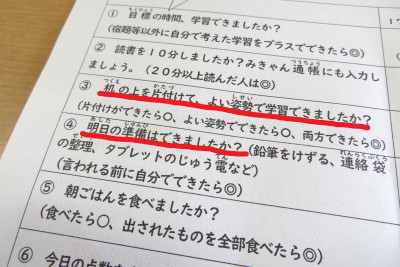 ① 目標の時間、学習できましたか？
（宿題等以外に自分で考えた学習をプラスでできたら◎）
② 読書を１０分しましたか？みきゃん通帳にも入力し
ましょう。（２０分以上読んだ人は◎）
③ 机の上を片付けて、よい姿勢で学習できましたか？
（片付けができたら〇、よい姿勢でできたら〇、両方できたら◎）
④ 明日の準備はできましたか？（鉛筆をけずる、連絡袋
の整理、タブレットのじゅう電など）
（言われる前に自分でできたら◎）
⑤ 朝ごはんを食べましたか？
（食べたら〇、出されたものを全部食べたら◎）
⑥ 今日の点数を